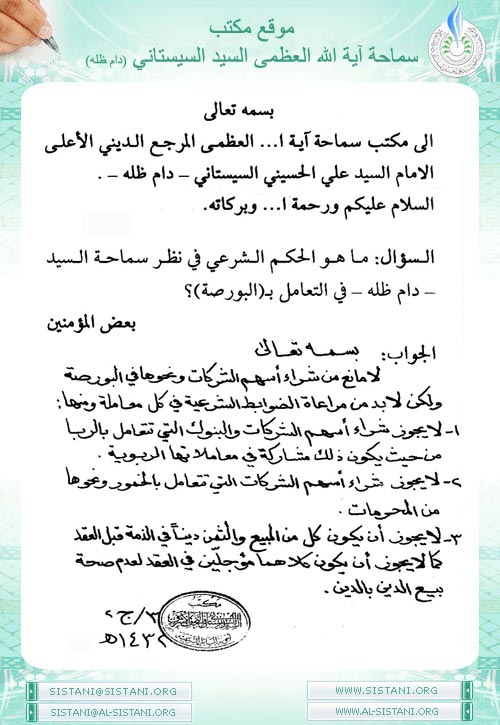 موقع مكتب
سماحة آية الله العظمى السيد السيستاني (دام ظله)
بسمه تعالى
الى مكتب سماحة آية ا... العظمى المرجع الديني الأعلى
الامام السيد علي الحسيني السيستاني – دام ظله – .
السلام عليكم ورحمة ا... وبركاته.
السؤال: ما هو الحكم الشرعي في نظر سماحة السيد
– دام ظله – في التعامل بـ(البورصة)؟
بعض المؤمنين
الجواب: بسمه تعالى
لا مانع من شراء أسهم الشركات ونحوها في البورصة
ولكن لابد من مراعاة الضوابط الشرعية في كل معاملة ومنها:
١- لا يجوز شراء أسهم الشركات والبنوك التي تتعامل بالربا
من حيث يكون ذلك مشاركة في معاملاتها الربوية .
٢- لا يجوز شراء أسهم الشركات التي تتعامل بالخمور ونحوها
من المحرمات .
٣- لا يجوز أن يكون كل من المبيع والثمن ديناً في الذمة قبل العقد
كما لا يجوز أن يكون كلاهما مؤجلين في العقد لعدم صحة
بيع الدين بالدين .
مكتب
٣/ج٢
١٤٣٢هـ
SISTANI@SISTANI.ORG
WWW.SISTANI.ORG
SISTANI@AL-SISTANI.ORG
WWW.AL-SISTANI.ORG